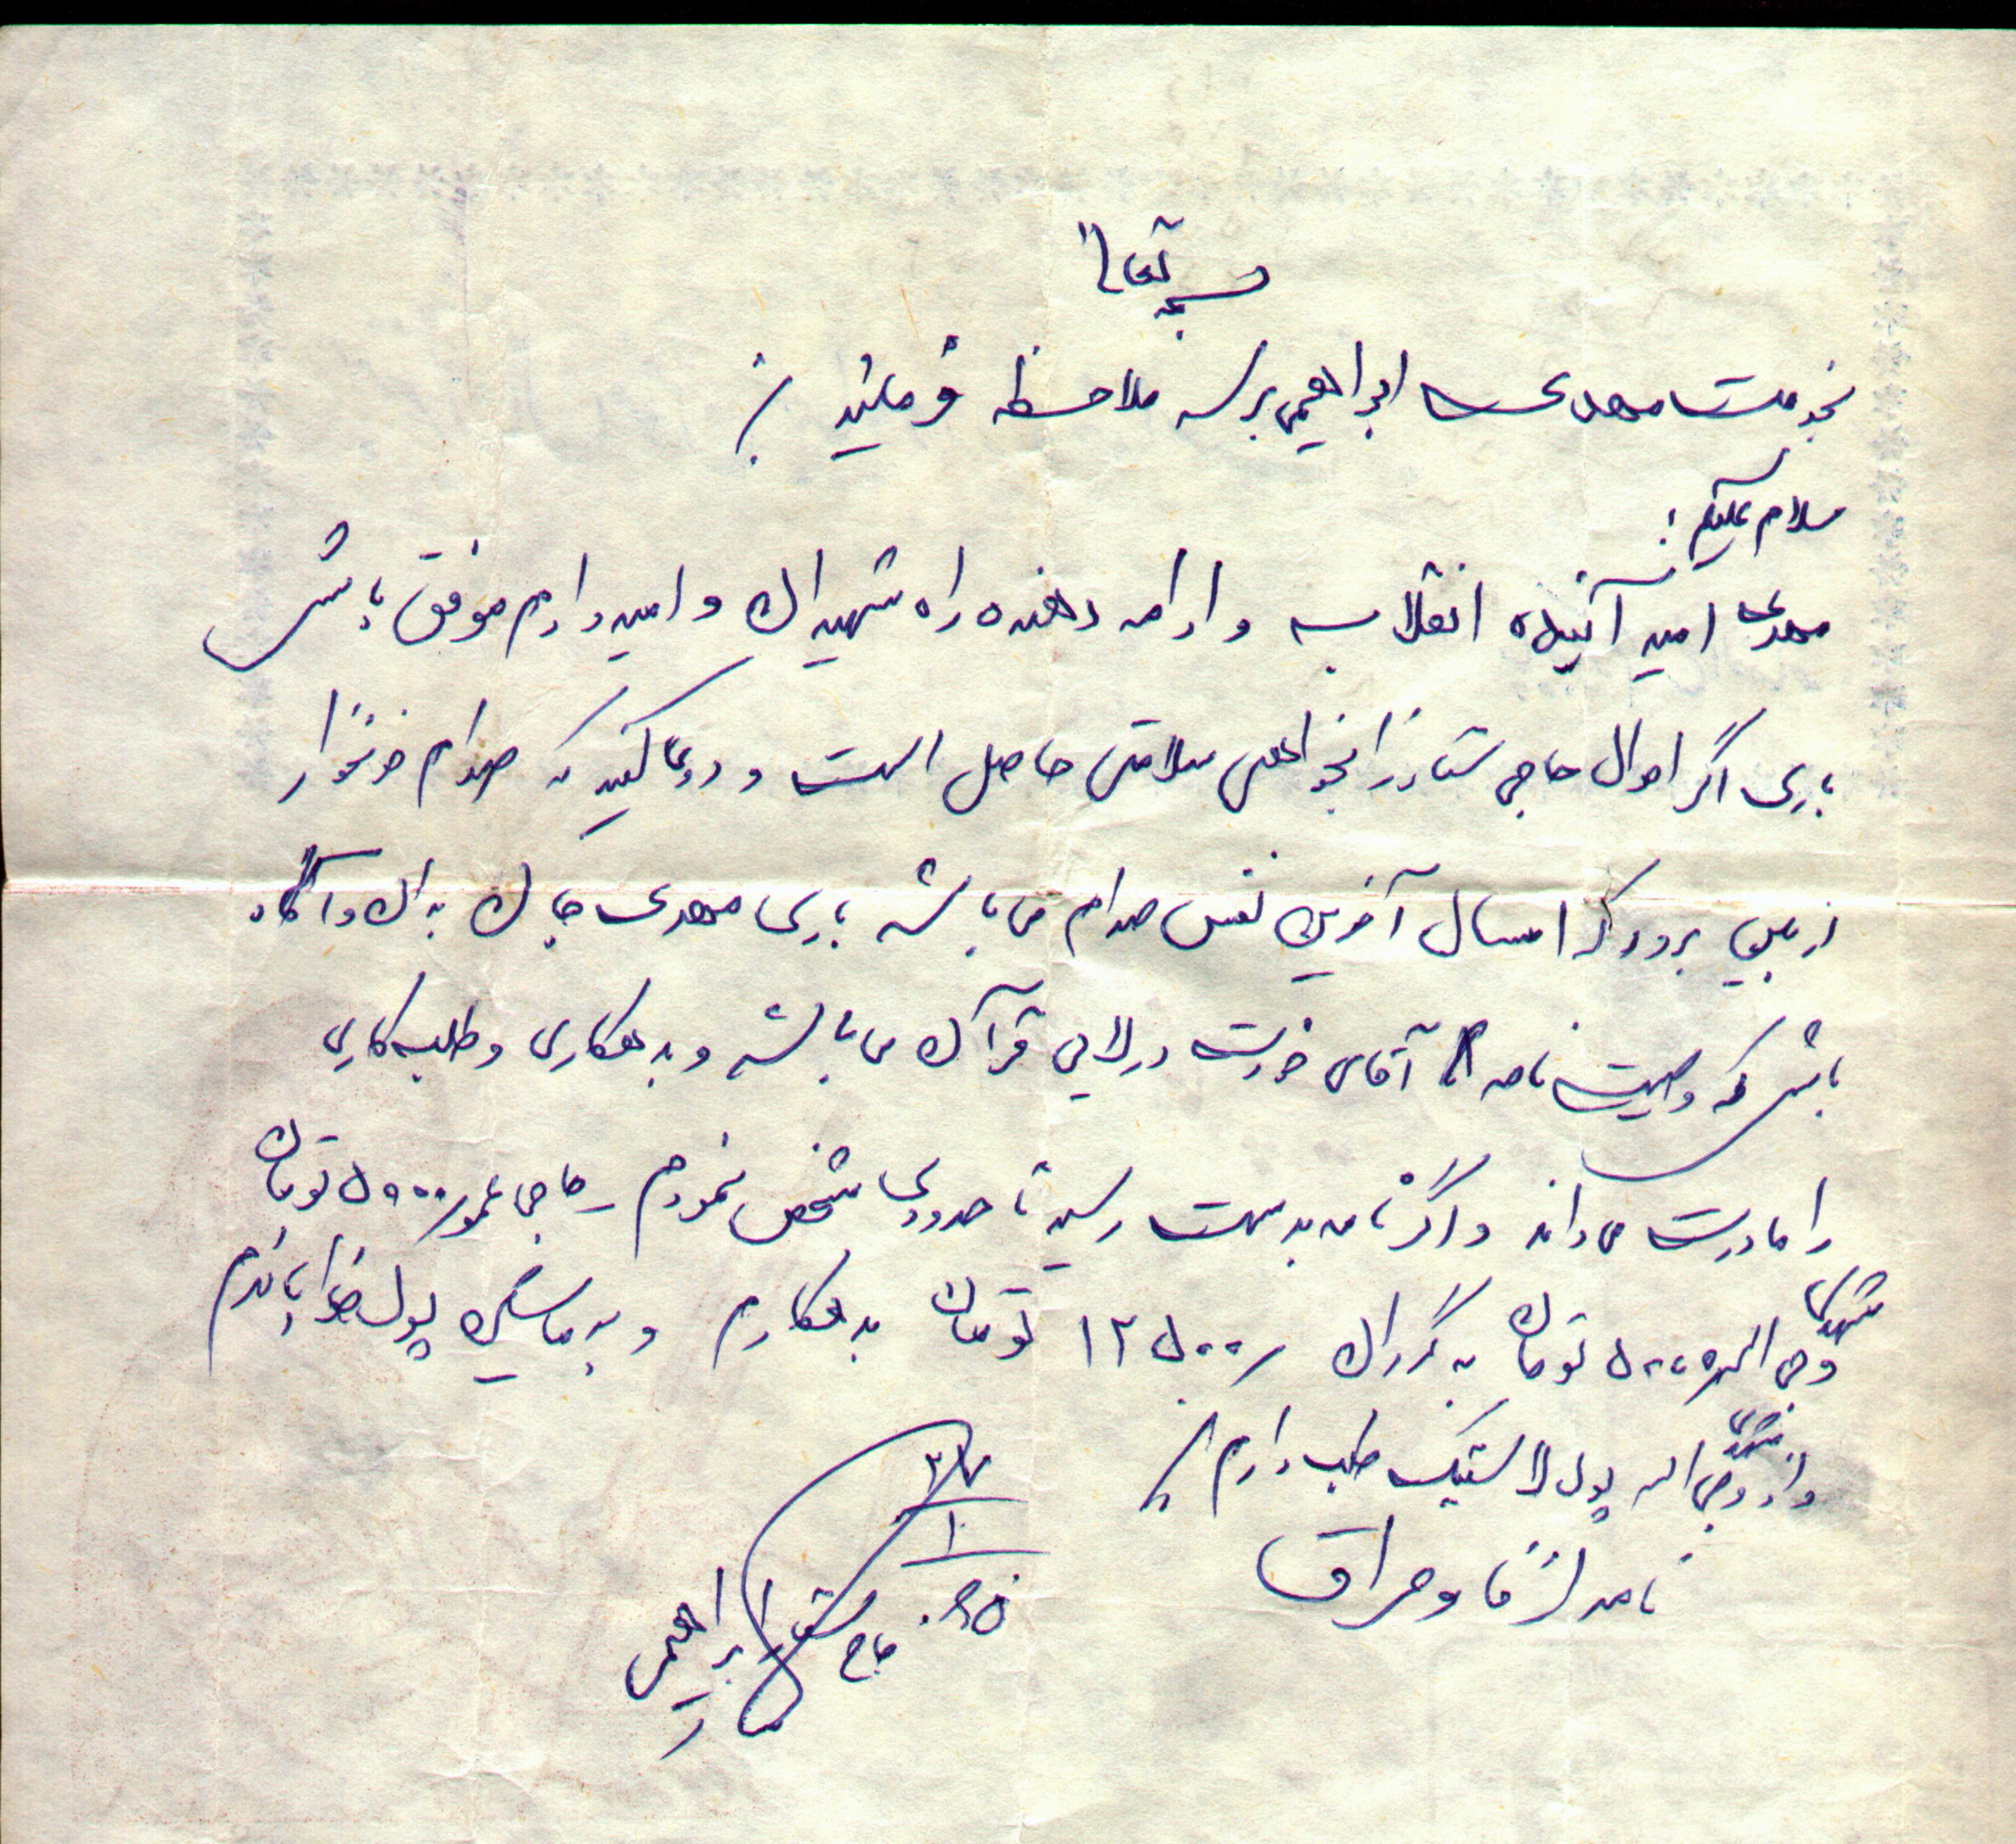 بسمه تعالی
بخدمت مهدی ابراهیمی برسد ملاحظه فرمائید
سلام علیکم:
مهدی امید آینده انقلاب و ادامه دهنده راه شهیدان و امیدوارم موفق باشی
باری اگر احوال حاجی ستار را بخواهی سلامتی حاصل است و دعا کنید که صدام خونخوار
از بین برود که امسال آخرین نفس صدام می باشد باری مهدی جان بدان و آگاه
باش که وصیت نامه آقای خودت در لای قرآن می باشد و بدهکاری و طلبکاری
را مادرت می داند و اگر نامه بدست رسید تا حدودی مشخص نمودم حاجی عمو ۵۰۰۰ تومان
مشهدی ۵۰۰۰ تومان به ۱۲۵۰۰ تومان بدهکارم و به پول
و از مشهدی پول لاستیک طلب دارم
نامه از فاو عراق
۱۰
۶۵ حاج ستار ابراهیمی